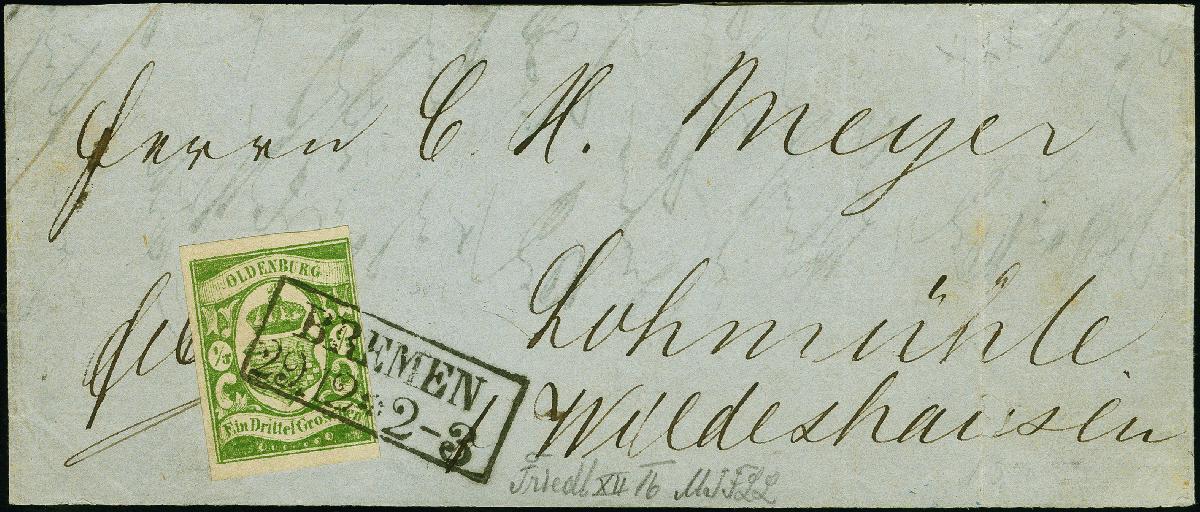 Herrn C. H. Meyer
Lohmühle
Wildeshausen
OLDENBURG
1/3
Ein Drittel Gro
BREMEN
29 2-3
Friedl XII